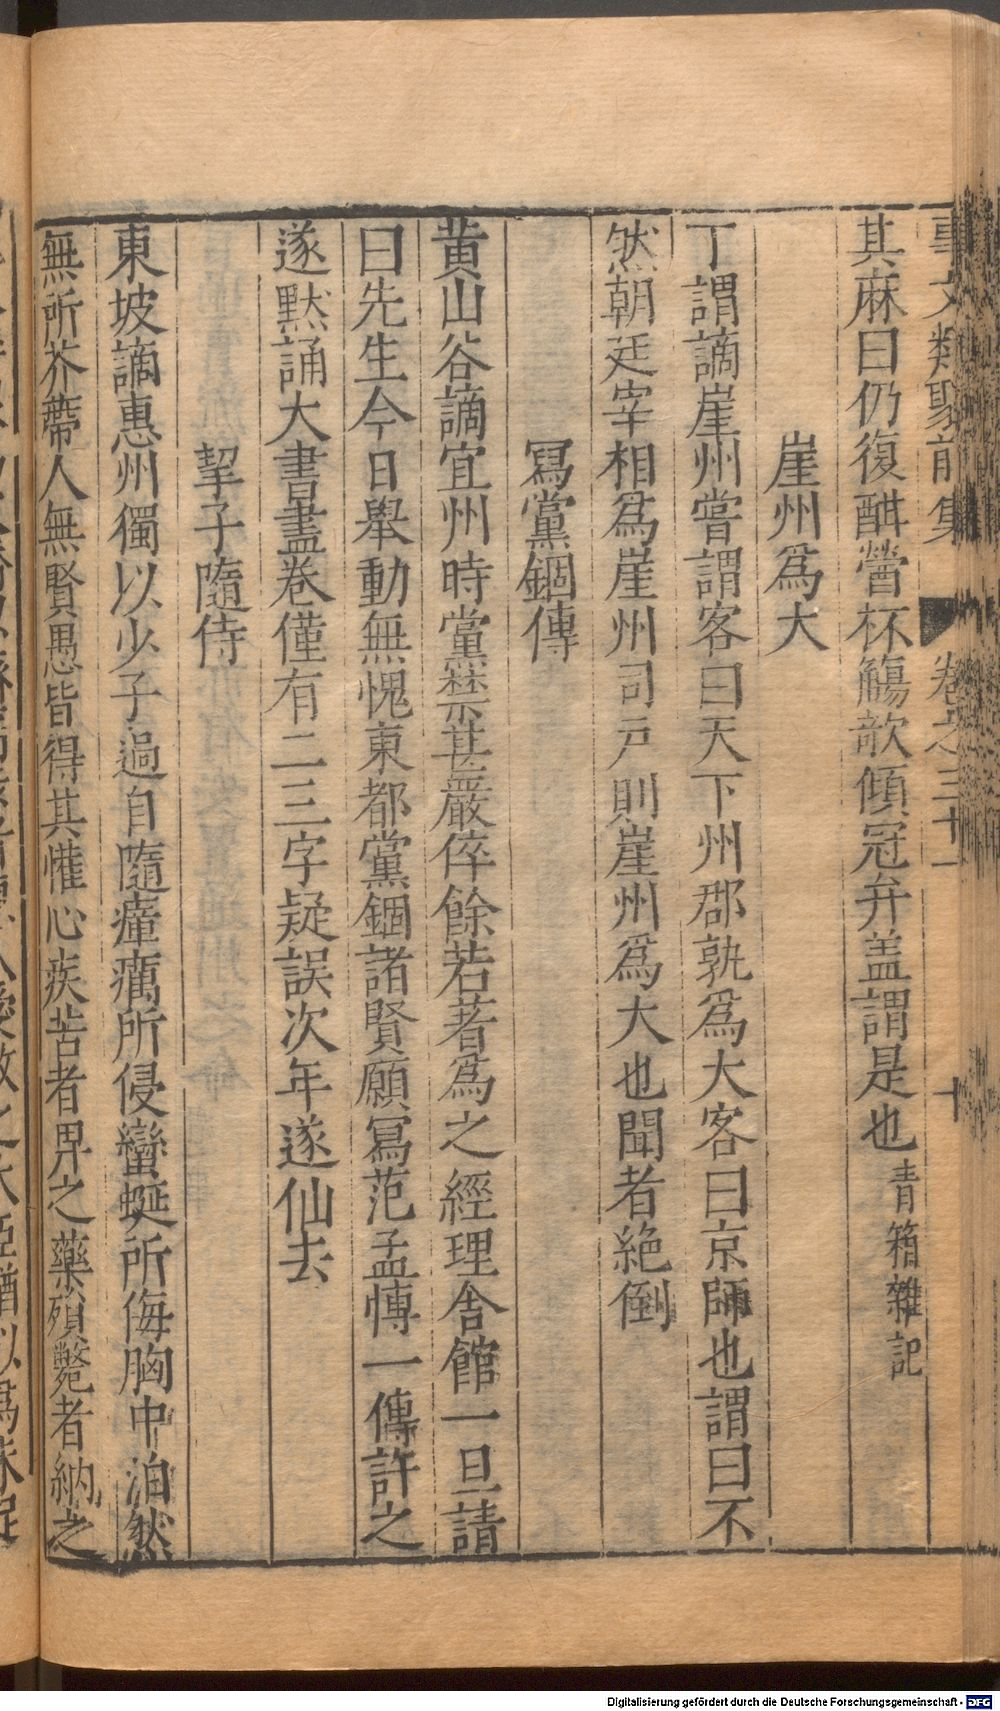 事文類聚前集 卷之三十一 十
其麻曰仍復酣營杯觴歆傾冠弁盖謂是也 青箱雜記
崖州爲大
丁謂謫崖州嘗謂客曰天下州郡孰爲大客曰京師也謂曰不
然朝廷宰相爲崖州司戶則崖州爲大也聞者絶倒
冩黨錮傳
黃山谷謫宜州時黨禁甚嚴倅餘若著爲之經理舍館一旦請
曰先生今日舉動無愧東都黨錮諸賢願冩范孟慱一傳許之
遂默誦大書盡卷僅有二三字疑誤次年遂仙去
挈子隨侍
東坡謫惠州獨以少子過自隨瘴癘所侵蠻蜒所侮胸中泊然
無所芥蔕人無賢愚皆得其懽心疾苦者畀之藥殞斃者納之
Digitalisierung gefördert durch die Deutsche Forschungsgemeinschaft - DFG